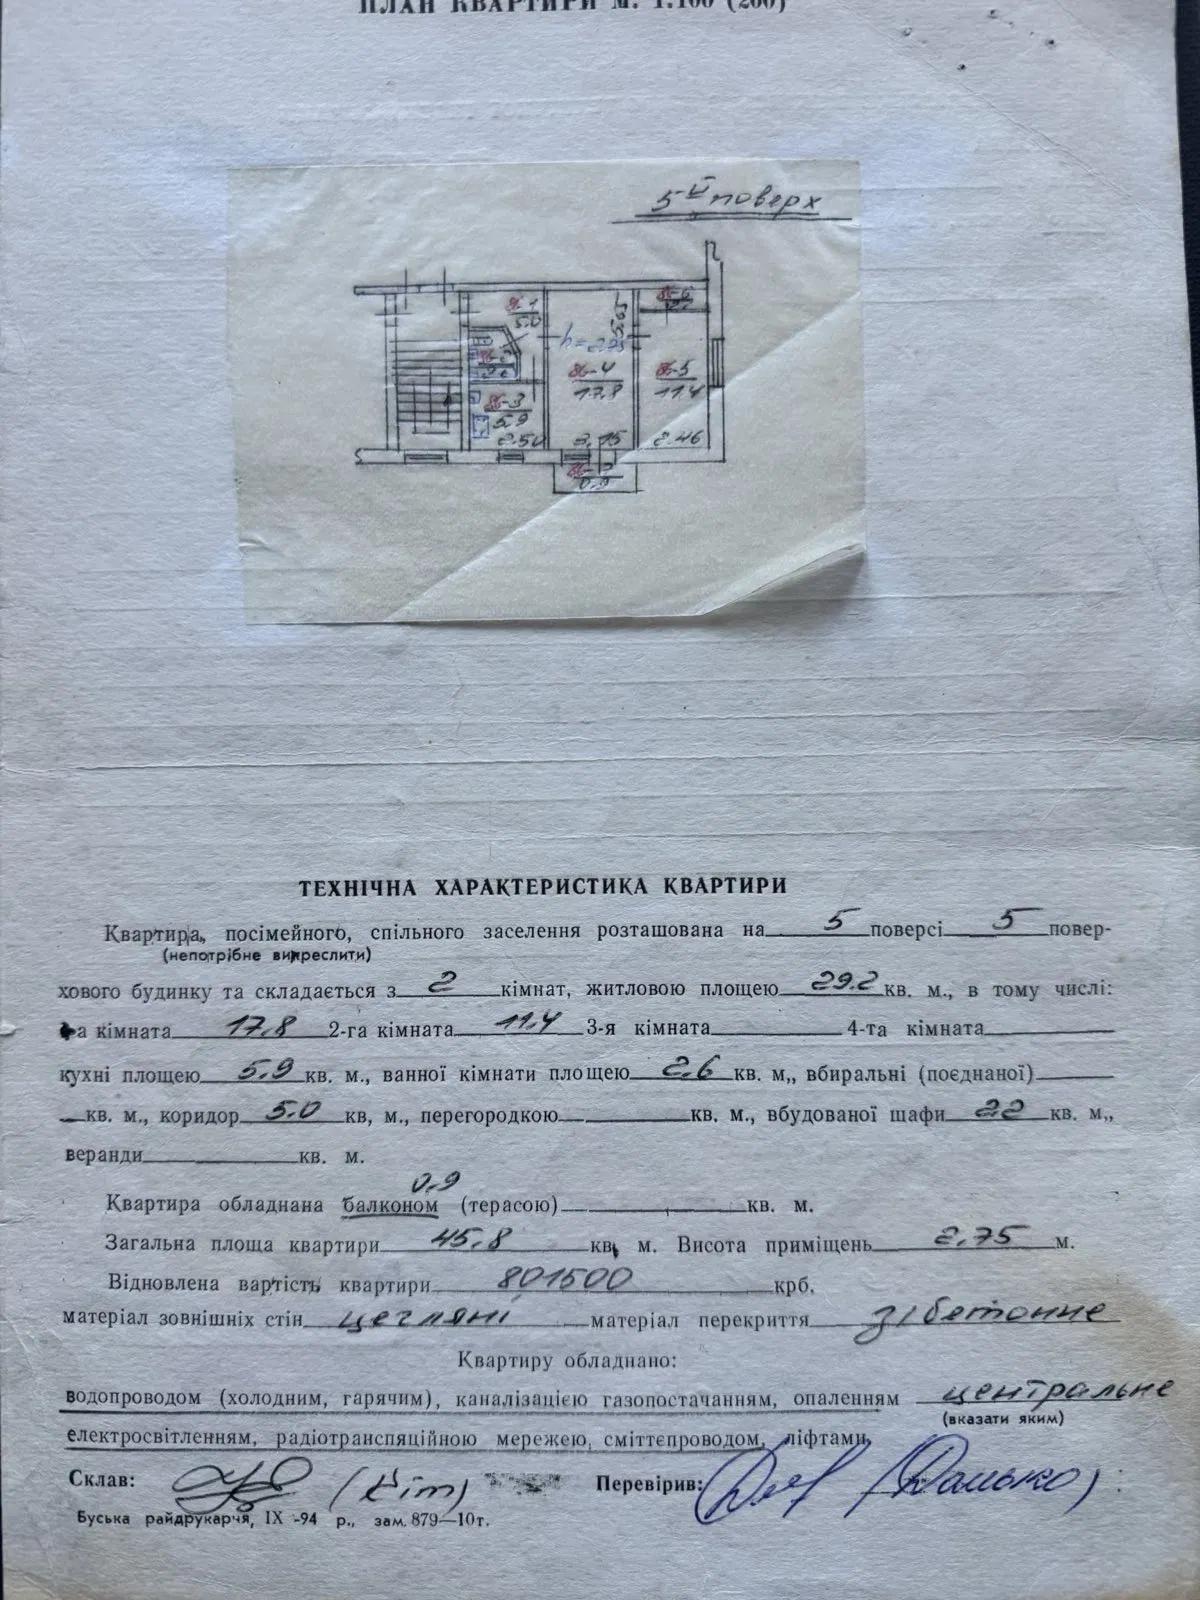 ПЛАН КВАРТИРИ М. 1:100 (200)
5й поверх
86-1
5.0
86-6
5.65
h=2.75
86-2
86-4
17.8
86-5
11.4
86-3
5.9
2.50
3.15
2.46
0.9
ТЕХНІЧНА ХАРАКТЕРИСТИКА КВАРТИРИ
Квартира, посімейного, спільного заселення розташована на 5 поверсі 5 повер-
(непотрібне викреслити)
хового будинку та складається з 2 кімнат, житловою площею 29.2 кв. м., в тому числі:
а кімната 17.8 2-га кімната 11.4 3-я кімната 4-та кімната
кухні площею 5.9 кв. м., ванної кімнати площею 2.6 кв. м,, вбиральні (поєднаної)
кв. м., коридор 5.0 кв, м., перегородкою кв. м., вбудованої шафи 2.2 кв. м,,
веранди кв. м.
0.9
Квартира обладнана балконом (терасою) кв. м.
Загальна площа квартири 45.8 кв. м. Висота приміщень 2.75 м.
Відновлена вартість квартири 801500 крб.
матеріал зовнішніх стін цегляні матеріал перекриття з/бетонне
Квартиру обладнано:
водопроводом (холодним, гарячим), каналізацією газопостачанням, опаленням центральне
(вказати яким)
електросвітленням, радіотрансляційною мережею, сміттєпроводом, ліфтами.
Склав: (Кіт) Перевірив:
Буська райдрукарчя, ІХ -94 р., зам. 879—10т.